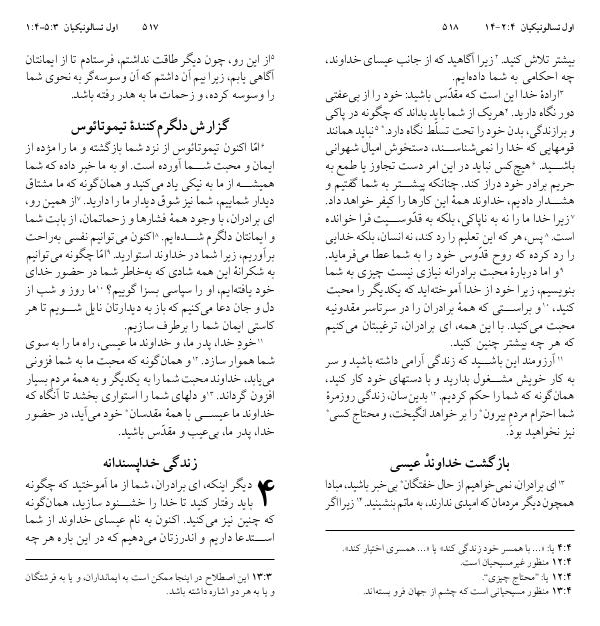 اول تسالونیکیان ۳:‏۵–۴:‏۱ ۵۱۷
۵از این رو، چون دیگر طاقت نداشتم، فرستادم تا از ایمانتان
آگاهی یابم، زیرا بیم آن داشتم که آن وسوسه‌گر به نحوی شما
را وسوسه کرده، و زحمات ما به هدر رفته باشد.
گزارش دلگرم‌کنندهٔ تیموتائوس
۶امّا اکنون تیموتائوس از نزد شما بازگشته و ما را مژده از
ایمان و محبت شما آورده است. او به ما خبر داده که شما
همیشه از ما به نیکی یاد می‌کنید و همان‌گونه که ما مشتاق
دیدار شماییم، شما نیز شوق دیدار ما را دارید. ۷از همین رو،
ای برادران، با وجود همهٔ فشارها و زحماتمان، از بابت شما
و ایمانتان دلگرم شده‌ایم. ۸اکنون می‌توانیم نفسی به‌راحت
برآوریم، زیرا شما در خداوند استوارید. ۹امّا چگونه می‌توانیم
به شکرانهٔ این همه شادی که به‌خاطر شما در حضور خدای
خود یافته‌ایم، او را سپاسی بسزا گوییم؟ ۱۰ما روز و شب از
دل و جان دعا می‌کنیم که باز به دیدارتان نایل شویم تا هر
کاستی ایمان شما را برطرف سازیم.
۱۱خودِ خدا، پدر ما، و خداوند ما عیسی، راه ما را به سوی
شما هموار سازد. ۱۲و همان‌گونه که محبت ما به شما فزونی
می‌یابد، خداوند محبت شما را به یکدیگر و به همهٔ مردم بسیار
افزون گرداند. ۱۳و دلهای شما را استواری بخشد تا آنگاه که
خداوند ما عیسی با همهٔ مقدسان* خود می‌آید، در حضور
خدا، پدر ما، بی‌عیب و مقدّس باشید.
زندگی خداپسندانه
۴ دیگر اینکه، ای برادران، شما از ما آموختید که چگونه
باید رفتار کنید تا خدا را خشنود سازید، همان‌گونه
که چنین نیز می‌کنید. اکنون به نام عیسای خداوند از شما
استدعا داریم و اندرزتان می‌دهیم که در این باره هر چه
۳:‏۱۳ این اصطلاح در اینجا ممکن است به ایمانداران، و یا به فرشتگان
و یا به هر دو اشاره داشته باشد.
اول تسالونیکیان ۴:‏۲–۱۴ ۵۱۸
بیشتر تلاش کنید. ۲زیرا آگاهید که از جانب عیسای خداوند،
چه احکامی به شما داده‌ایم.
۳ارادهٔ خدا این است که مقدّس باشید: خود را از بی‌عفتی
دور نگاه دارید. ۴هریک از شما باید بداند که چگونه در پاکی
و برازندگی، بدن خود را تحت تسلّط نگاه دارد.* ۵نباید همانند
قومهایی که خدا را نمی‌شناسند، دستخوش امیال شهوانی
باشید. ۶هیچ‌کس نباید در این امر دست تجاوز یا طمع به
حریم برادر خود دراز کند. چنانکه پیشتر به شما گفتیم و
هشدار دادیم، خداوند همهٔ این کارها را کیفر خواهد داد.
۷زیرا خدا ما را نه به ناپاکی، بلکه به قدّوسیت فرا خوانده
است. ۸پس، هر که این تعلیم را رد کند، نه انسان، بلکه خدایی
را رد کرده که روح قدّوس خود را به شما عطا می‌فرماید.
۹و اما دربارهٔ محبت برادرانه نیازی نیست چیزی به شما
بنویسیم، زیرا خود از خدا آموخته‌اید که یکدیگر را محبت
کنید، ۱۰و براستی که همهٔ برادران را در سرتاسر مقدونیه
محبت می‌کنید. با این همه، ای برادران، ترغیبتان می‌کنیم
که هر چه بیشتر چنین کنید.
۱۱آرزومند این باشید که زندگی آرامی داشته باشید و سر
به کار خویش مشغول بدارید و با دستهای خود کار کنید،
همان‌گونه که شما را حکم کردیم. ۱۲بدین‌سان، زندگی روزمرهٔ
شما احترام مردم بیرون* را بر خواهد انگیخت، و محتاج کسی*
نیز نخواهید بود.
بازگشت خداوندْ عیسی
۱۳ای برادران، نمی‌خواهیم از حال خفتگان* بی‌خبر باشید، مبادا
همچون دیگر مردمان که امیدی ندارند، به ماتم بنشینید. ۱۴زیرا اگر
۴:‏۴ یا: «... با همسر خود زندگی کند» یا «... همسری اختیار کند».
۴:‏۱۲ منظور غیرمسیحیان است.
۴:‏۱۲ یا: "محتاج چیزی".
۴:‏۱۳ منظور مسیحیانی است که چشم از جهان فرو بسته‌اند.